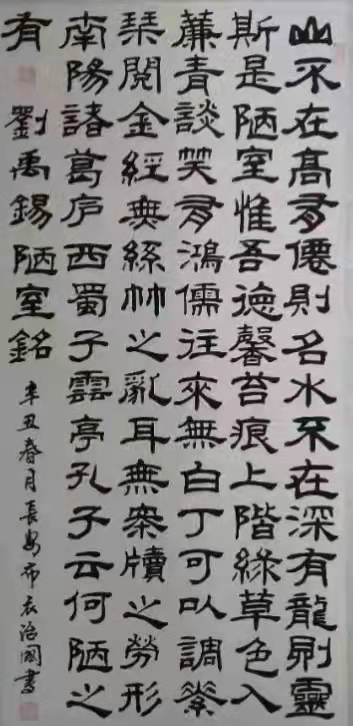 山不在高有僊則名水不在深有龍則靈
斯是陋室惟吾德馨苔痕上階綠草色入
簾青談笑有鴻儒往來無白丁可以調素
琴閱金經無絲竹之亂耳無案牘之勞形
南陽諸葛庐西蜀子雲亭孔子云何陋之
有 劉禹錫陋室銘 辛丑春月長安布衣治國書